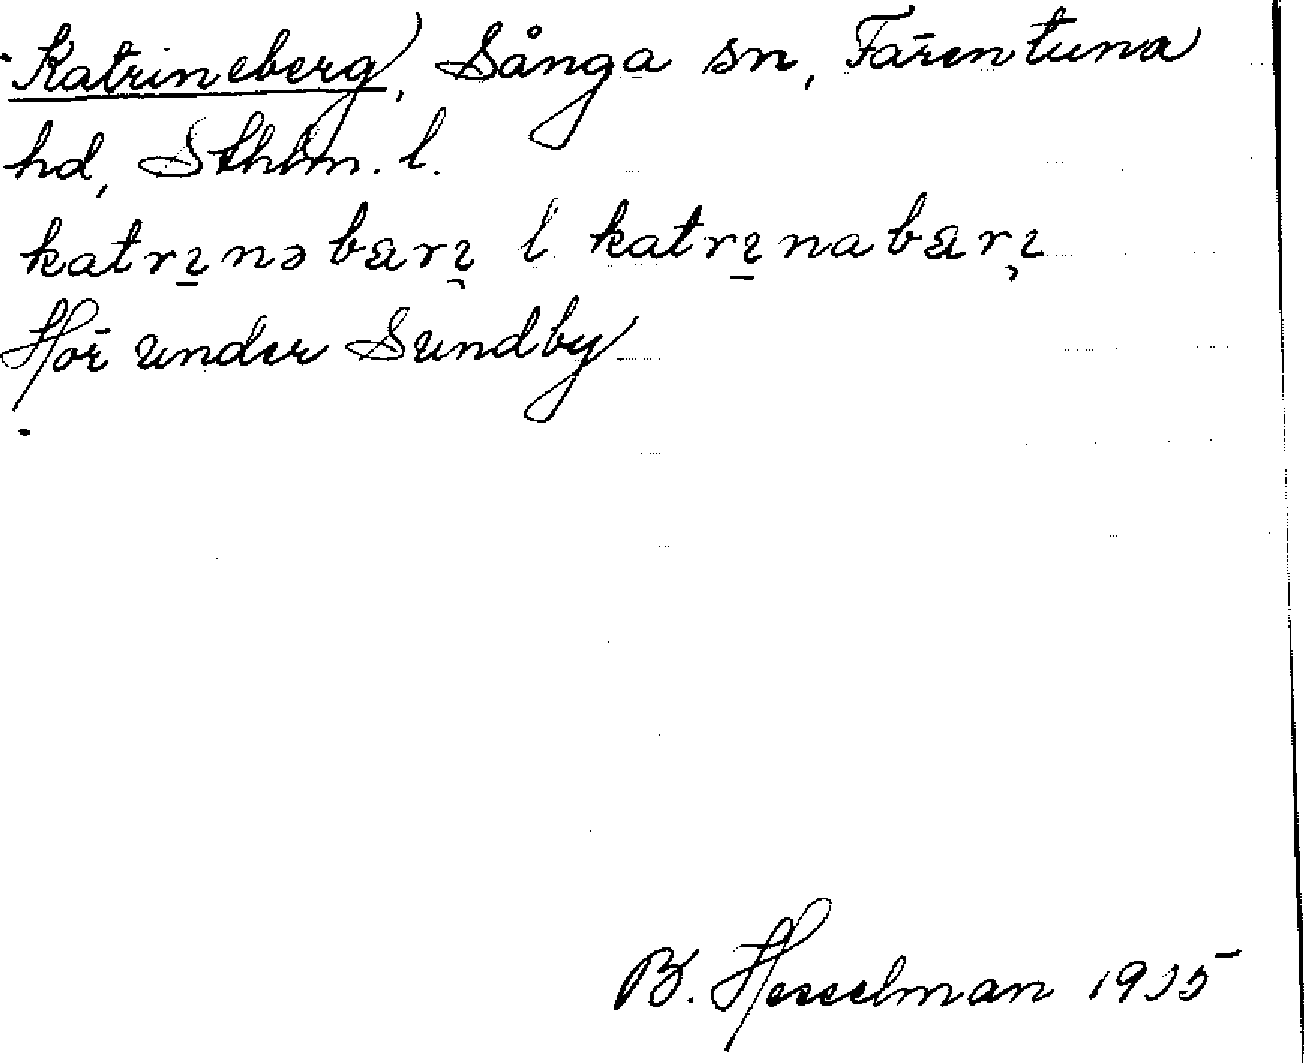 Katrineberg, Sånga sn, Färentuna
hd, Sthlm. l.
katrı̱nəbærı̣ l katrı̱nabærı̣
Hör under Sundby
B. Hesselman 1935